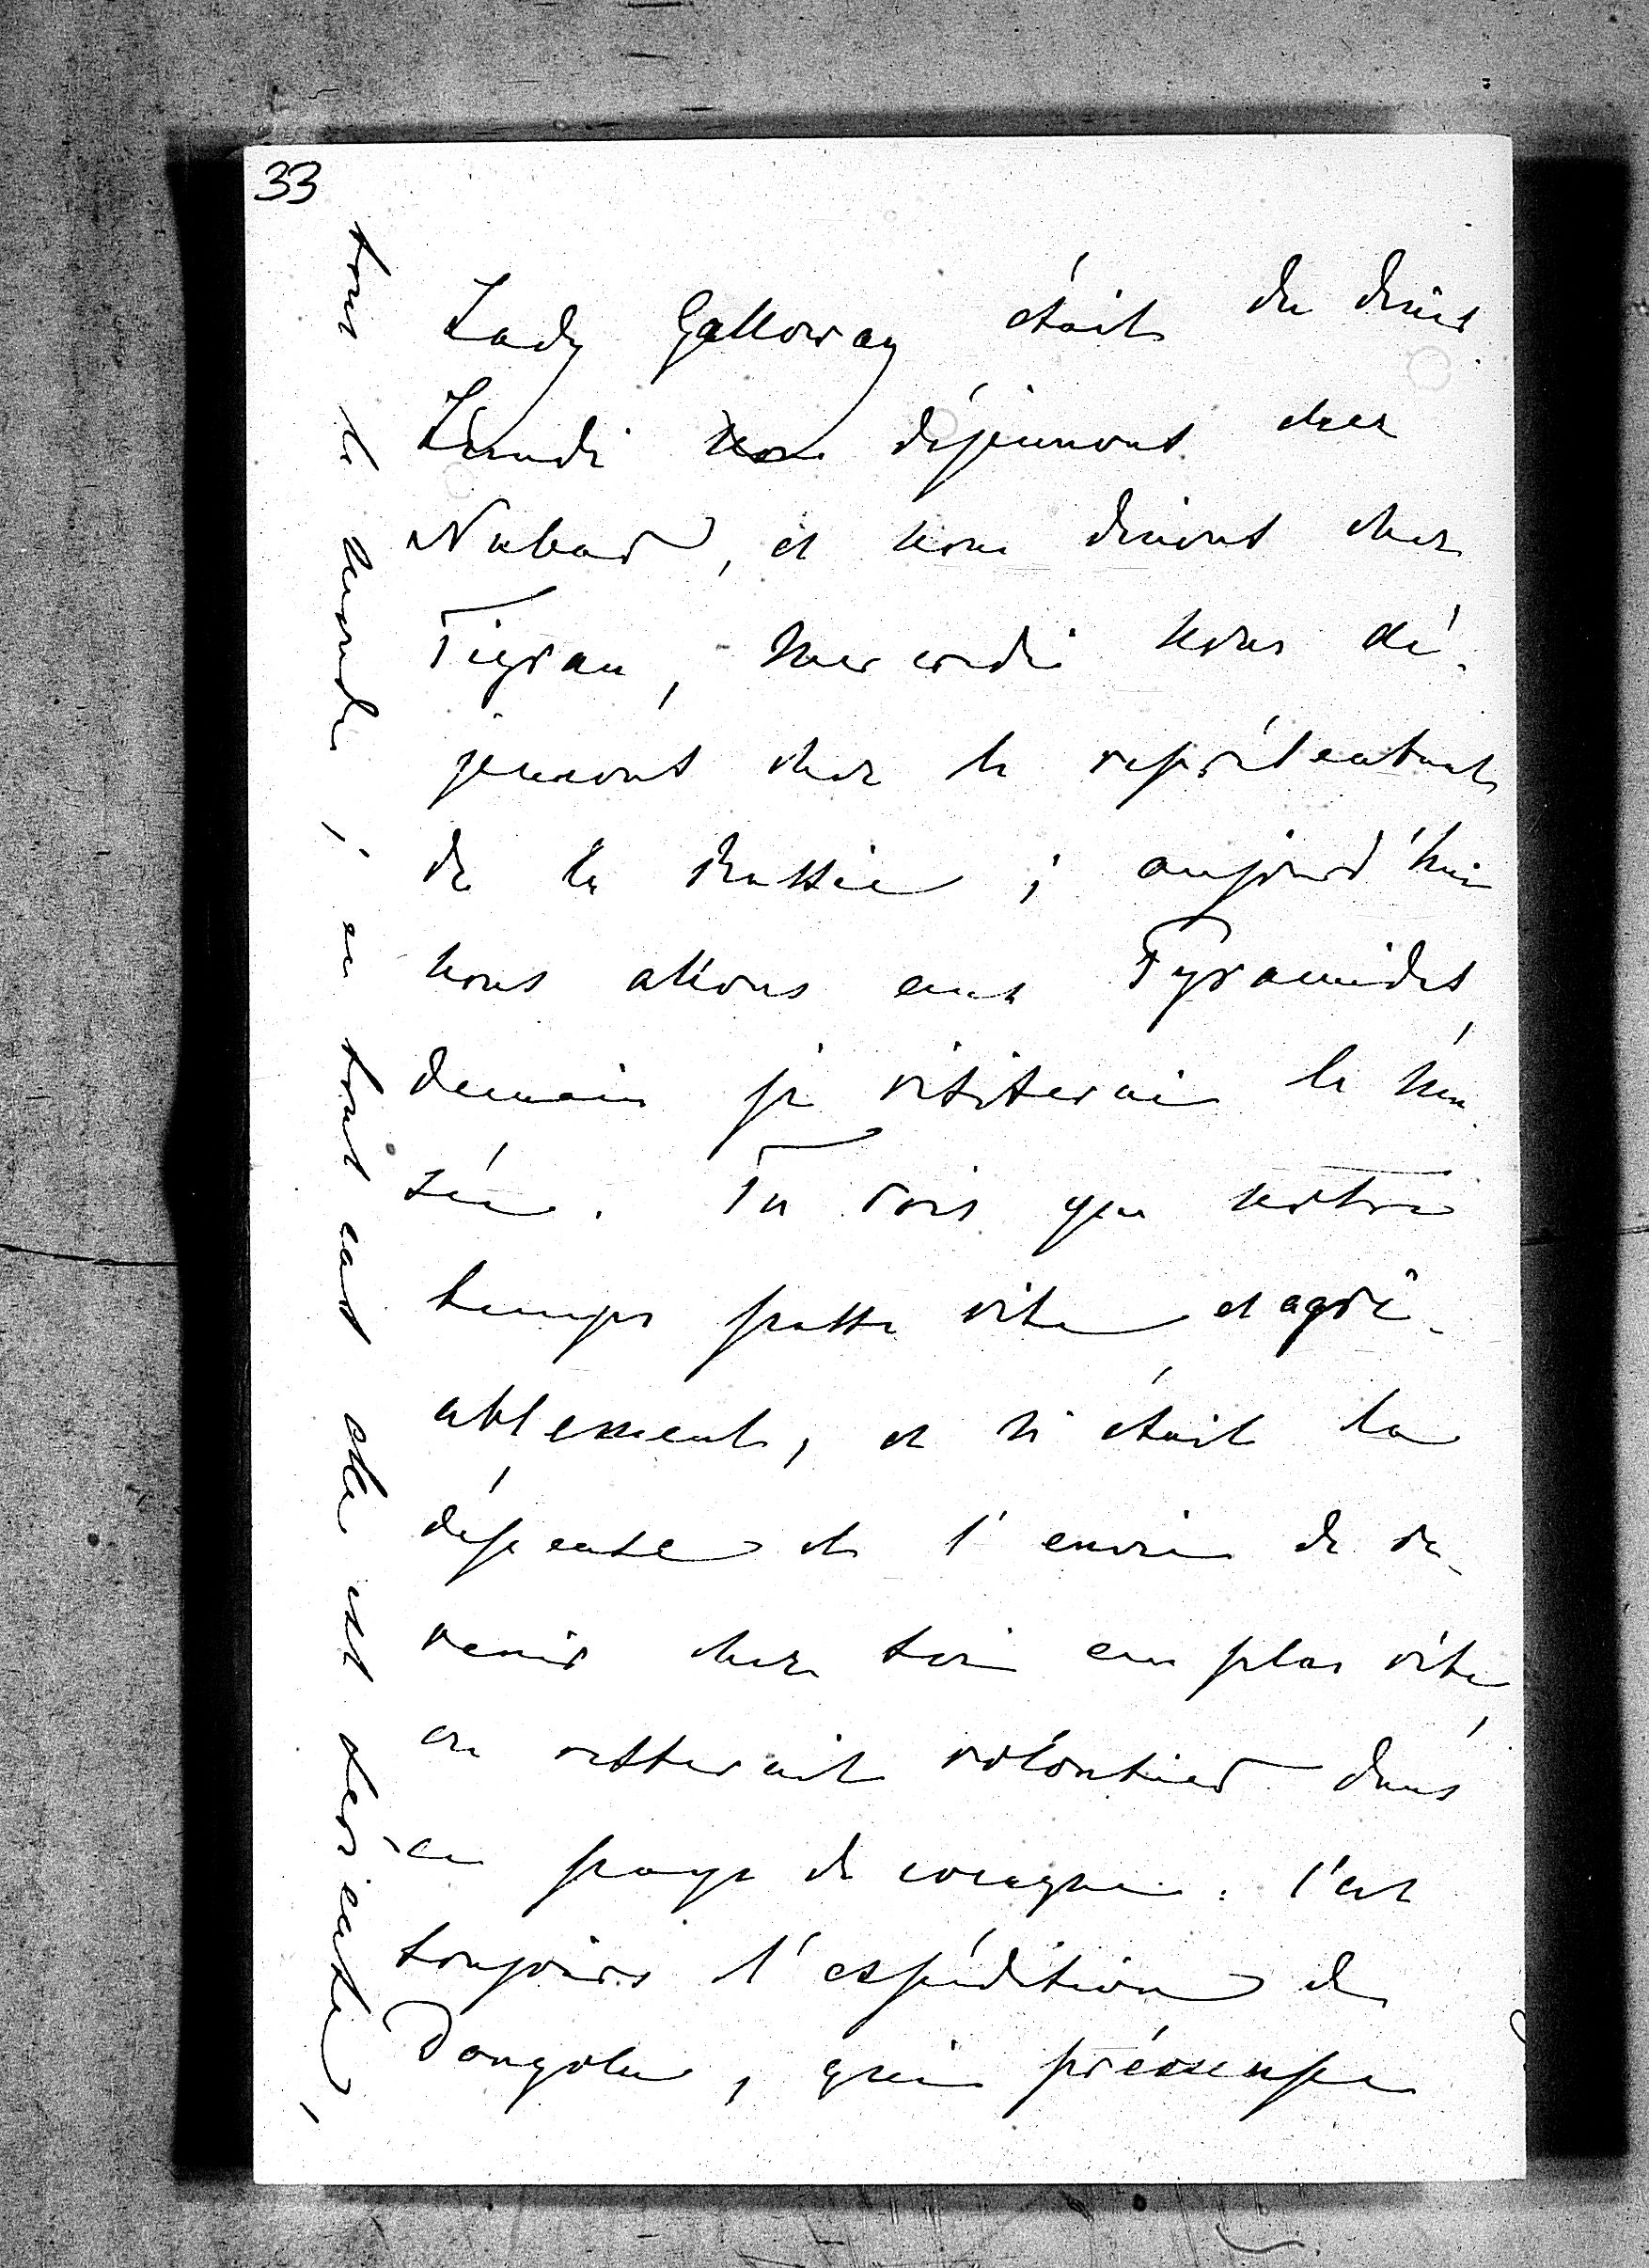 33
Lady Galloway était du diner
Lundi nous déjeunons chez
Nubar, et nous dinons chez
Tigran, Mercredi nous dé-
jeunons chez le représentant
de la Russie ; aujourd'hui
nous allons aux Pyramides,
demain je visiterai le Mu
sée. Tu vois que notre
temps passe vite et agré-
ablement, et si était la
dépense et l'envie de re-
venir chez toi au plus vite,
on resterait volontier dans
ce pays de cocagne. C'est
toujours l'expédition de
Dongola, qui préoccupe
tout le monde ; en tout cas elle est dericate,